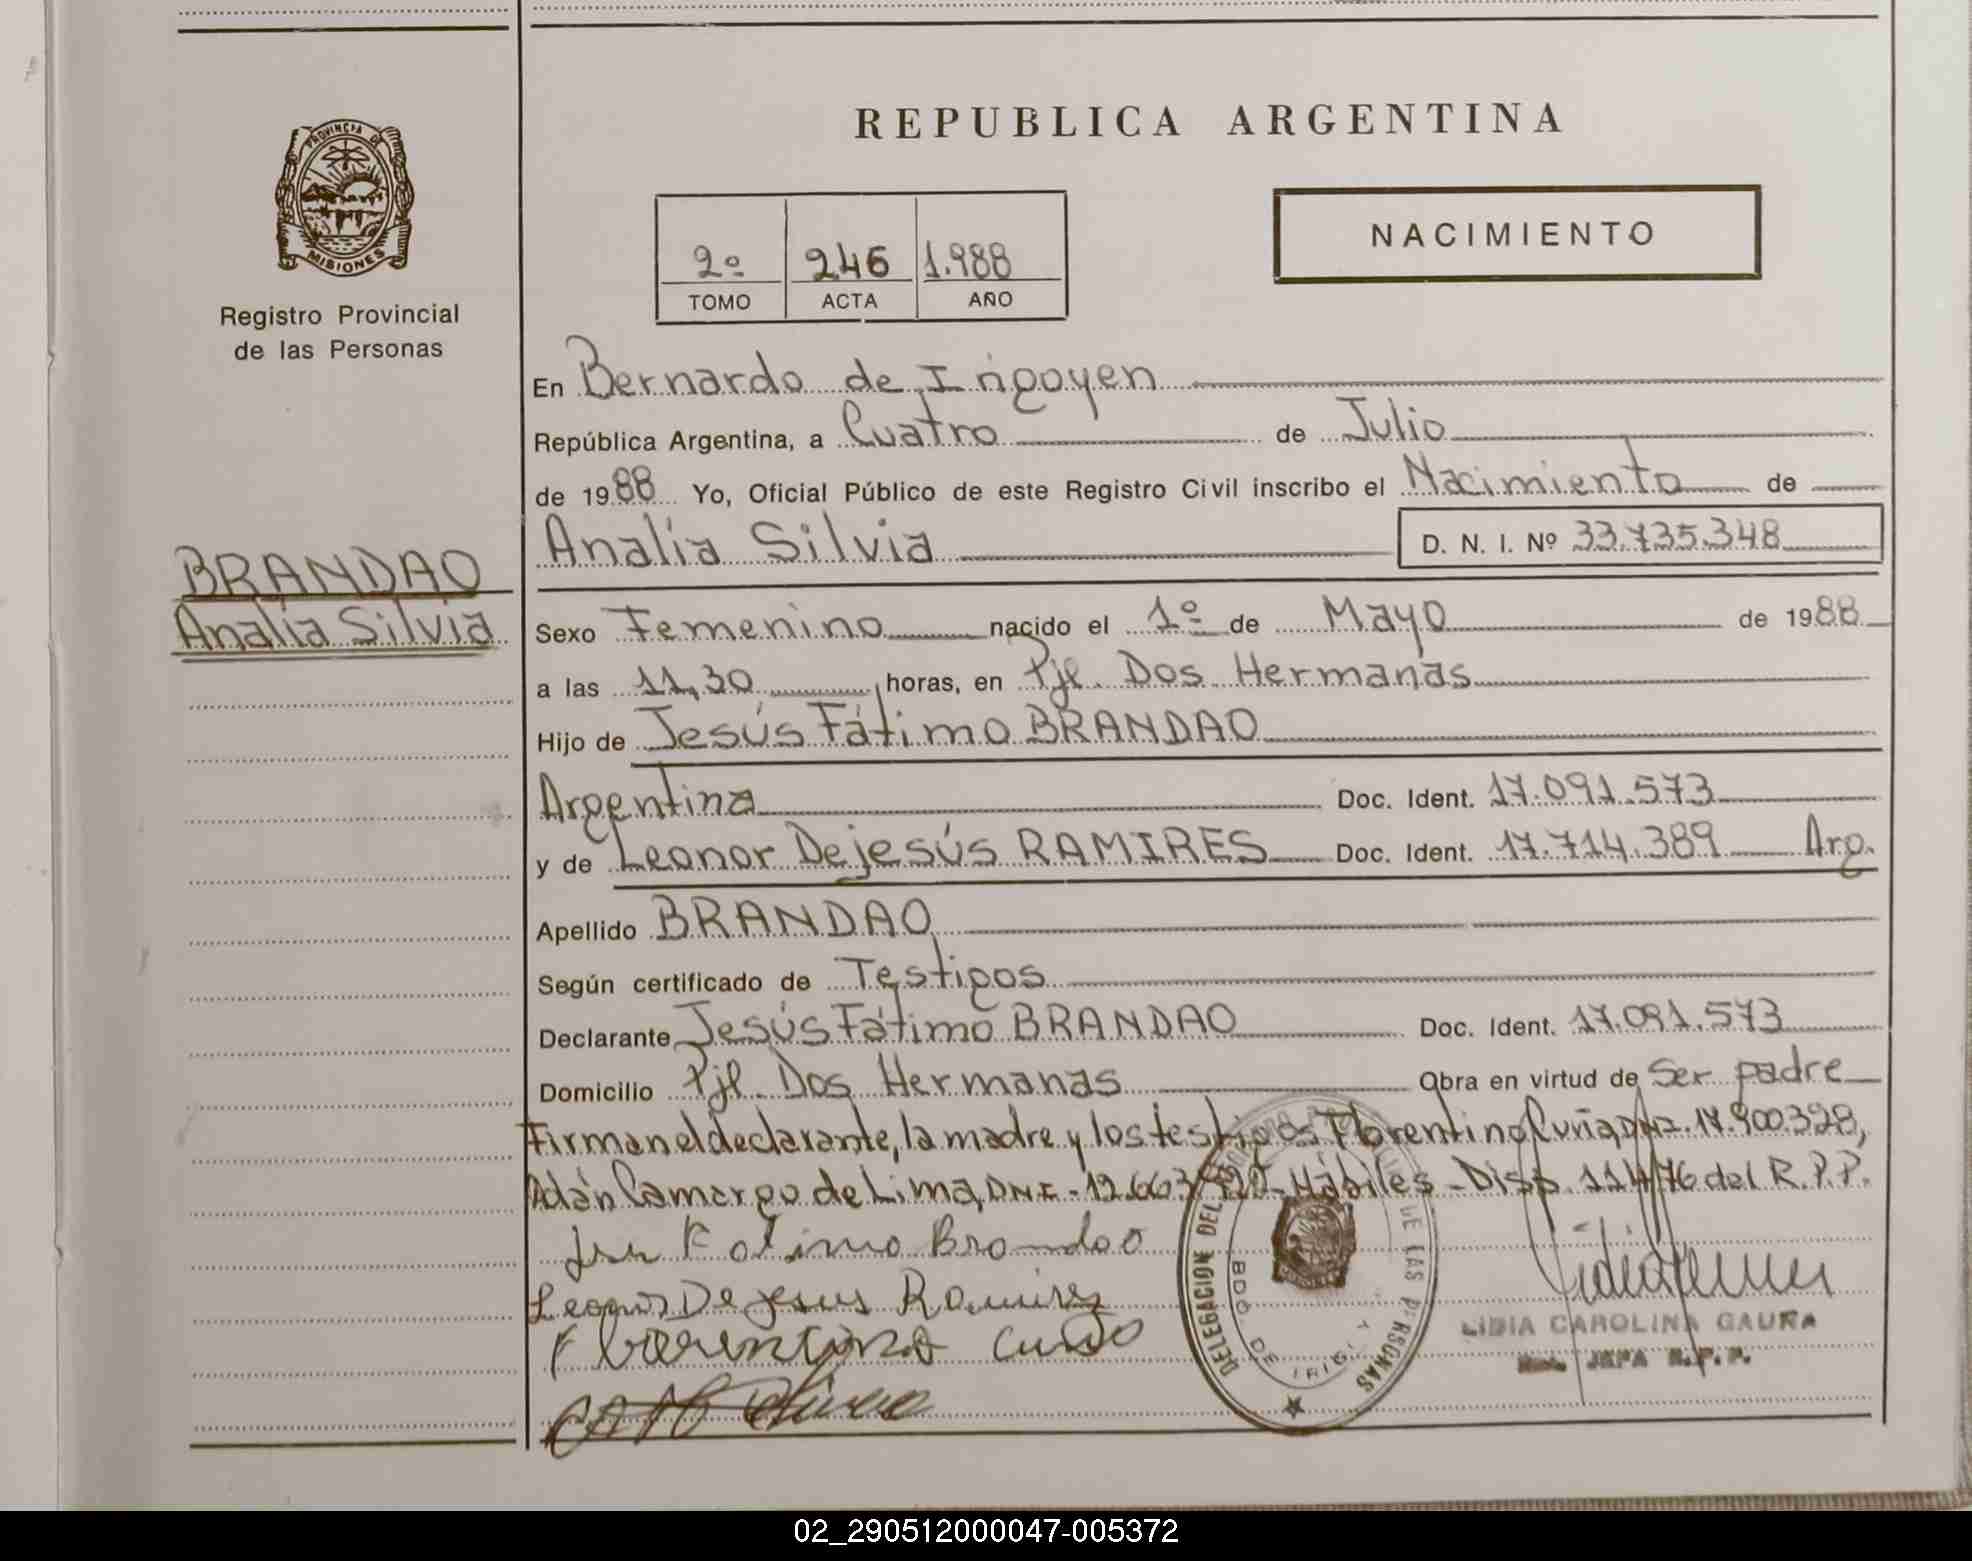 REPUBLICA ARGENTINA
PROVINCIA DE
MISIONES
Registro Provincial
de las Personas
2º 246 1.988
TOMO ACTA AÑO
NACIMIENTO
En Bernardo de Irigoyen
República Argentina, a Cuatro de Julio
de 1988 Yo, Oficial Público de este Registro Civil inscribo el Nacimiento de
Analía Silvia D. N. I. Nº 33.735.348
BRANDAO
Analía Silvia
Sexo Femenino nacido el 1º de Mayo de 1988
a las 11,30 horas, en Pje. Dos Hermanas
Hijo de Jesús Fátimo BRANDAO
Argentina Doc. Ident. 17.091.573
y de Leonor Dejesús RAMIRES Doc. Ident. 17.714.389 Arg.
Apellido BRANDAO
Según certificado de Testigos
Declarante Jesús Fátimo BRANDAO Doc. Ident. 17.091.573
Domicilio Pje. Dos Hermanas Obra en virtud de Ser padre
Firman el declarante, la madre y los testigos Florentino Cuña, DNI. 17.900.328,
Adán Camargo de Lima, DNI - 12.663. Hábiles - Disp. 114/76 del R.P.P.
Fatimo Brandao
Leonor De Jesus Ramirez
Florentino
DELEGACION DEL DE LAS PERSONAS
BDO. DE IRIG
LIDIA CAROLINA GAUNA
JEFA R.P.P.
02_290512000047-005372